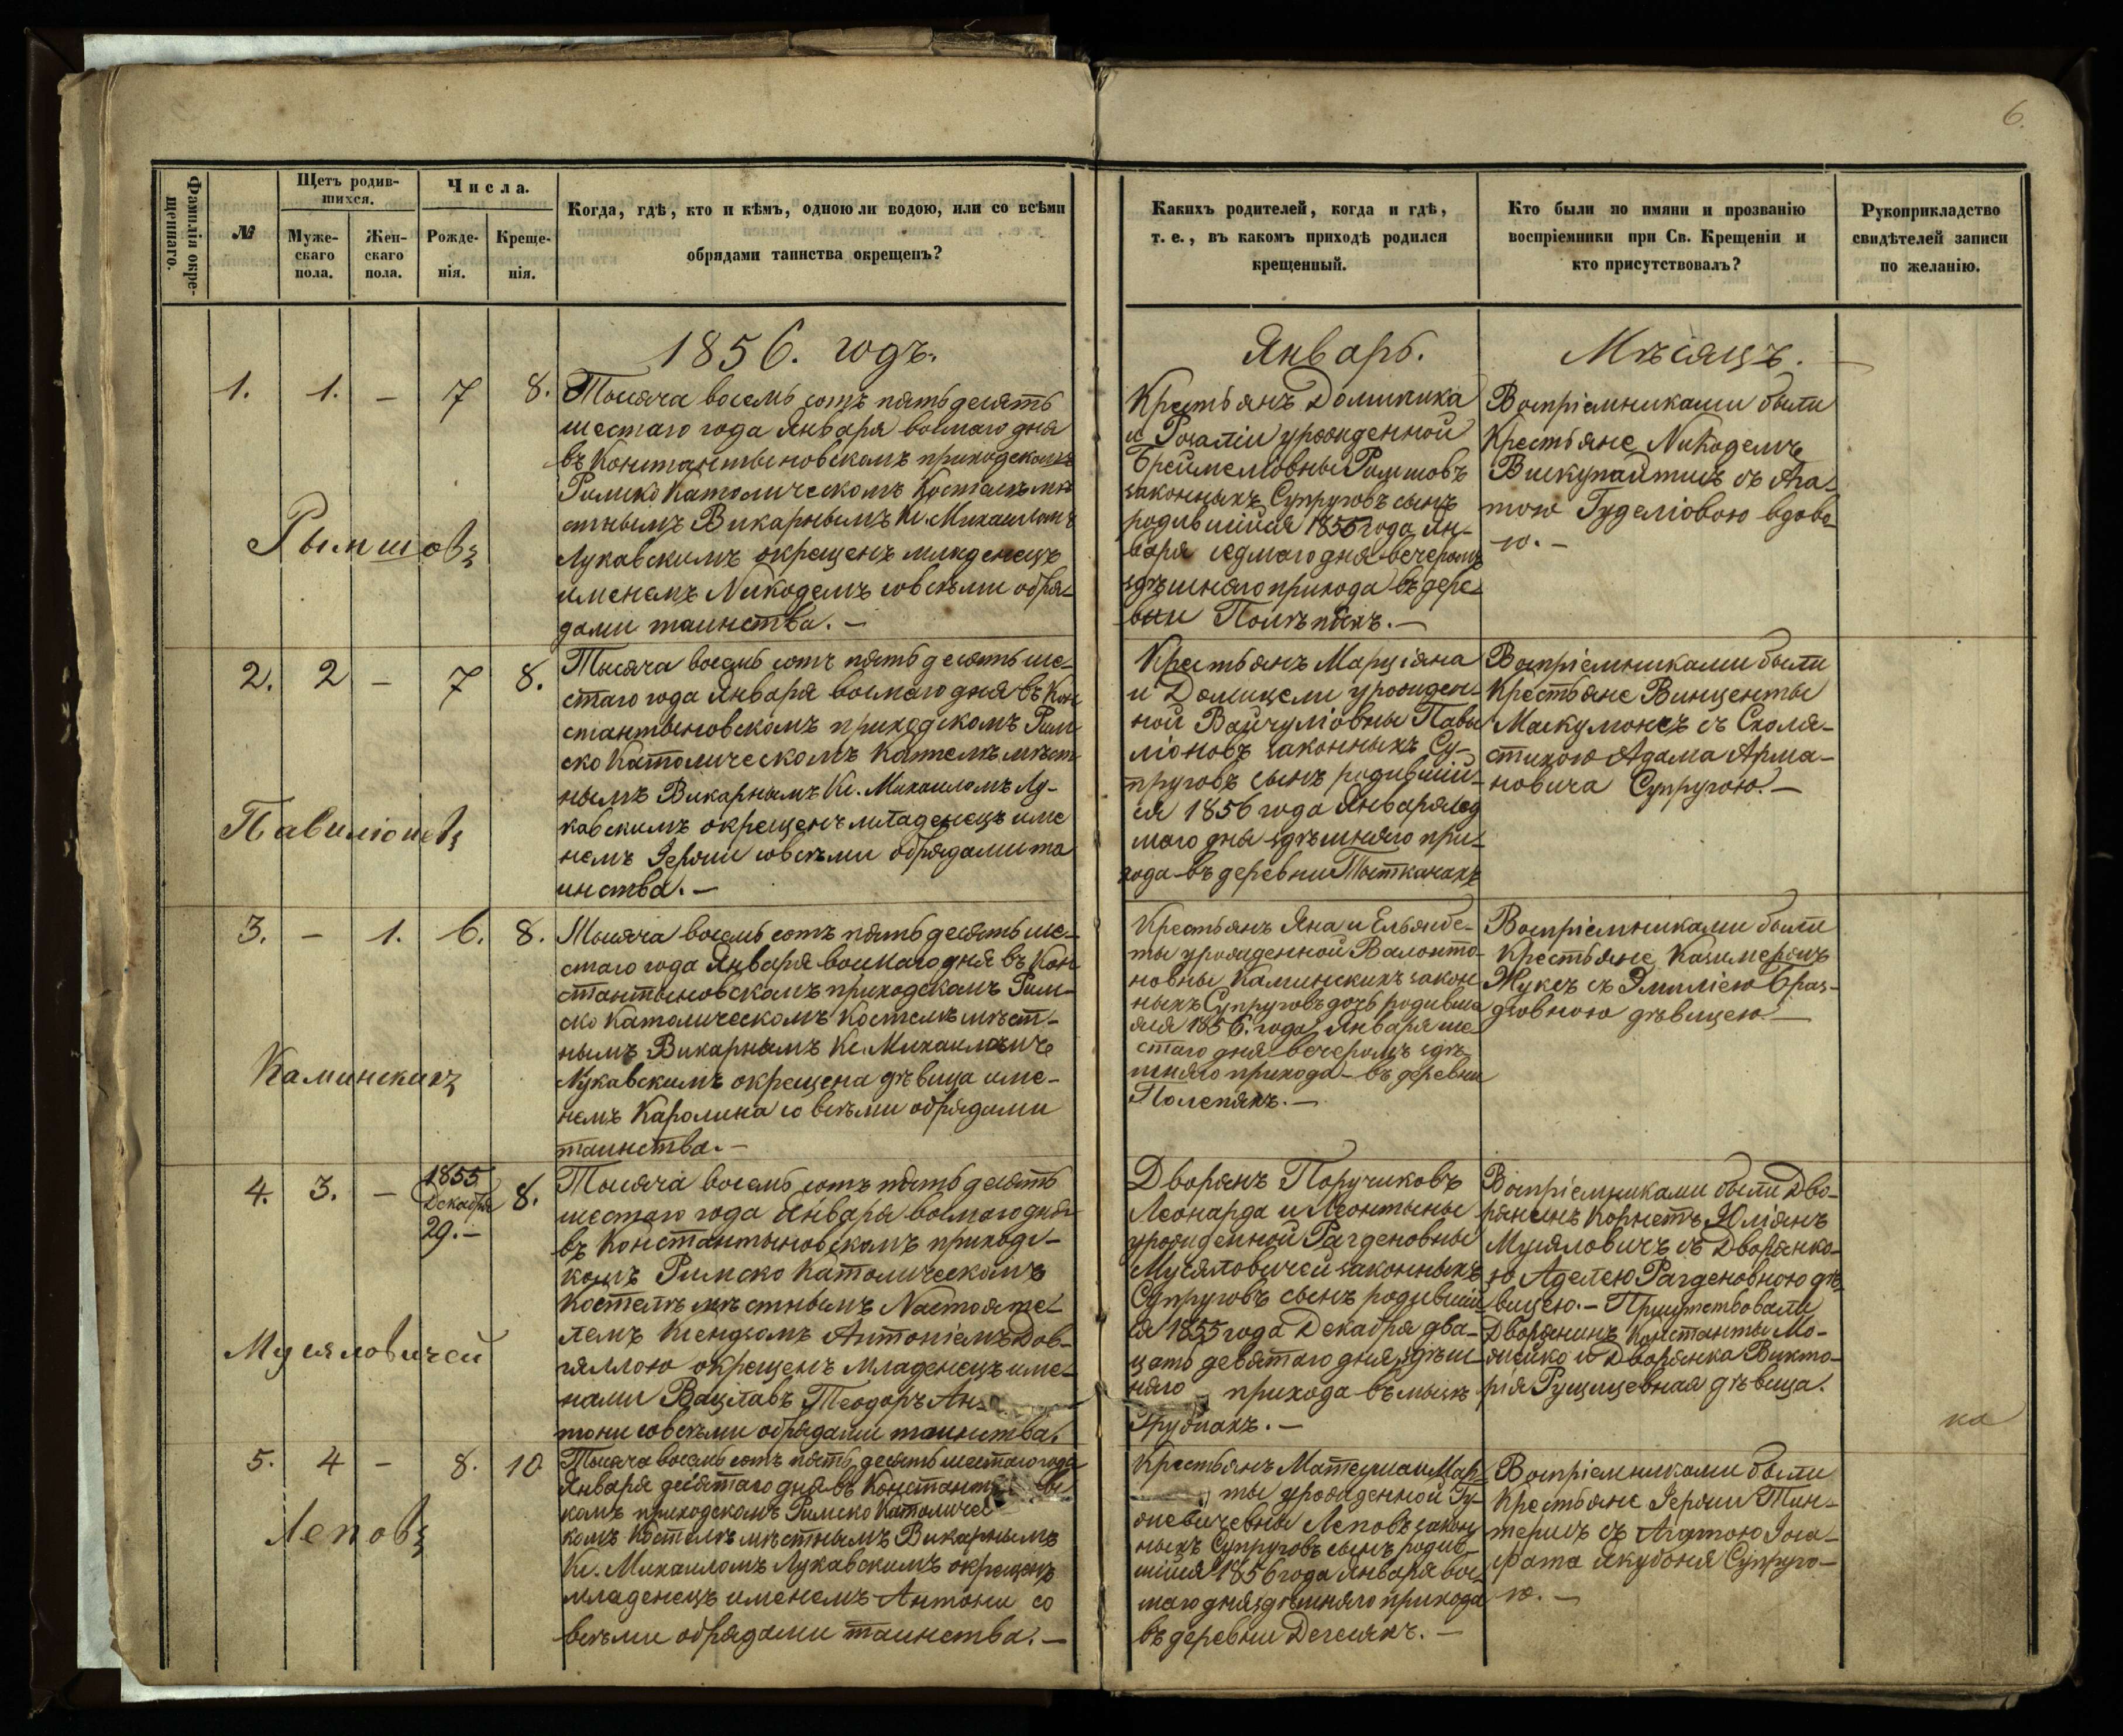 6.
Фамилія окре-
щеннаго.
№
Щетъ родив-
шихся.
Муже-
скаго
пола.
Жен-
скаго
пола.
Числа.
Рожде-
нія.
Креще-
нія.
Когда, гдѣ, кто и кѣмъ, одною ли водою, или со всѣми
обрядами таинства окрещенъ?
Какихъ родителей, когда и гдѣ,
т. е., въ какомъ приходѣ родился
крещенный.
Кто были по имяни и прозванію
воспріемники при Св. Крещеніи и
кто присутствовалъ?
Рукоприкладство
свидѣтелей записи
по желанію.
1856. годъ.
Январь.
Мѣсяцъ.
1. 1. – 7 8.
Рымшовъ
Тысяча восемь сотъ пятьдесятъ
шестаго года Января восмаго дня
въ Константыновскомъ приходскомъ
Римско Католическомъ Костелѣ мѣ
стнымъ Викарнымъ Кс. Михаиломъ
Лукавскимъ окрещенъ младенецъ
именемъ Никодемъ совсѣми обря-
дами таинства. –
Крестьянъ Доминика
и Розаліи урожденной
Рымшовъ
законныхъ Супруговъ сынъ
родившійся 1856 года Ян-
варя седмаго дня вечеромъ
здѣшняго прихода въ дере-
вни. –
Воспріемниками были
Крестьяне Никодемъ
съ Ага-
тою вдово-
ю. –
2. 2 – 7 8.
Павиліонсвъ
Тысяча восемь сотъ пятьдесятъ ше-
стаго года Января восмаго дня въ Кон
стантыновскомъ приходскомъ Рим
ско Католическомъ Костелѣ мѣст
нымъ Викарнымъ Кс. Михаиломъ Лу-
кавскимъ окрещенъ младенецъ име
немъ Іероним совсѣми обрядами та
инства. –
Крестьянъ Марціяна
и Домицели урожден-
ной Вайчуліовны Пави
ліоновъ законныхъ Су-
пруговъ сынъ родившій-
ся 1856 года Января сед
маго дня здѣшняго при-
хода въ деревни
Воспріемниками были
Крестьяне Винценты
Маскулюнсъ съ Схоля-
стикою Адама Арма-
новича Супругою. –
3. – 1. 6. 8.
Каминскихъ
Тысяча восемь сотъ пятьдесятъ ше-
стаго года Января восмаго дня въ Кон
стантыновскомъ приходскомъ Рим-
ско Католическомъ Костелѣ мѣст-
нымъ Викарнымъ Кс. Михаиломъ
Лукавскимъ окрещена дѣвица име-
немъ Каролина со всѣми обрядами
таинства. –
Крестьянъ Яна и Ельжбе-
ты урожденной Валенто-
новны Каминскихъ закон
ныхъ Супруговъ дочь родивша
яся 1856. года Января ше
стаго дня вечеромъ здѣ-
шняго прихода – въ деревни
Полепяхъ. –
Воспріемниками были
Крестьяне Казимеръ
Жуксъ съ Эмиліею
дѣвицею –
4. 3. – 1855
Декабря
29. – 8.
Мусяловичей
Тысяча восемь сотъ пятьдесятъ
шестаго года Января восмаго дня
въ Константыновскомъ приходс-
комъ Римско Католическомъ
Костелѣ мѣстнымъ Настояте-
лемъ Ксендзомъ Антоніемъ Дов-
гялло окрещенъ младенецъ име-
нами Вацлавъ Теодоръ Ан-
тони совсѣми обрядами таинства.
Дворянъ Поручиковъ
Леонарда и Леонтыны
урожденной Рагденовны
Мусяловичей законныхъ
Супруговъ сынъ родившій
ся 1855 года Декабря два-
цать девятаго дня здѣш-
няго прихода въ мызѣ
Воспріемниками были Дво-
рянинъ Корнетъ Юліянъ
Мусяловичъ съ Дворянко-
ю Аделею Рагденовною дѣ-
вицею. – Присутствовали
Дворянинъ Константы Мо-
и Дворянка Викто-
рія дѣвица.
на
5. 4 – 8. 10
Леповъ
Тысяча восемь сотъ пятьдесятъ шестаго года
Января десятаго дня въ Константыновс
комъ приходскомъ Римско Католичес
комъ Костелѣ мѣстнымъ Викарнымъ
Кс. Михаиломъ Лукавскимъ окрещенъ
младенецъ именемъ Антони со
всѣми обрядами таинства. –
Крестьянъ Матеуша и Мар-
ты урожденной
Леповъ закон
ныхъ Супруговъ сынъ родив-
шійся 1856 года Января вос-
маго дня здѣшняго прихода
въ деревни. –
Воспріемниками были
Крестьяне Іероним
съ Агатою Іоза-
фата Супруго-
ю. –